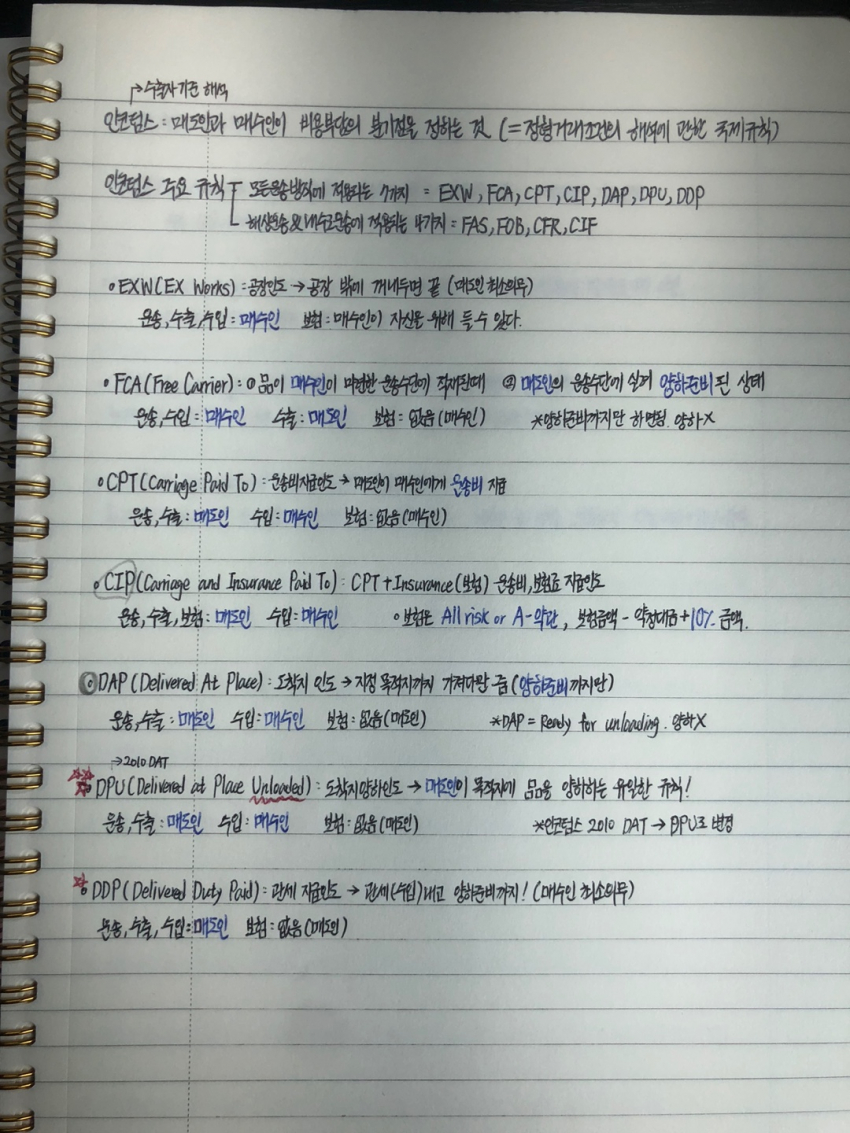 ↱수출자 기준 해석
인코텀스 : 매도인과 매수인이 비용부담의 분기점을 정하는 것 (= 정형거래조건의 해석에 관한 국제규칙)
인코텀스 주요 규칙 ┌ 모든운송방식에 적용되는 7가지 = EXW, FCA, CPT, CIP, DAP, DPU, DDP
└ 해상운송&내수로운송에 적용되는 4가지 = FAS, FOB, CFR, CIF
• EXW(EX Works) : 공장인도 → 공장 밖에 꺼내두면 끝 (매도인 최소의무)
운송, 수출, 수입 : 매수인 보험 : 매수인이 자신을 위해 들 수 있다.
• FCA(Free Carrier) : ① 물품이 매수인이 마련한 운송수단에 적재된때 ② 매도인의 운송수단에 실려 양하준비된 상태
운송, 수입 : 매수인 수출 : 매도인 보험 : 없음 (매수인) *양하준비까지만 하면됨. 양하X
• CPT(Carriage Paid To) : 운송비지급인도 → 매도인이 매수인에게 운송비 지급
운송, 수출 : 매도인 수입 : 매수인 보험 : 없음 (매수인)
• CIP(Carriage and Insurance Paid To) : CPT + Insurance(보험) 운송비, 보험료 지급인도
운송, 수출, 보험 : 매도인 수입 : 매수인 ○ 보험은 All risk or A-약관, 보험금액 - 약정대금+10% 금액.
◎ DAP (Delivered At Place) : 도착지 인도 → 지정 목적지까지 가져다만 줌 (양하준비까지만)
운송, 수출 : 매도인 수입 : 매수인 보험 : 없음 (매도인) *DAP = Ready for unloading. 양하X
→2010 DAT
☆☆☆ DPU(Delivered at Place Unloaded) : 도착지양하인도 → 매도인이 목적지에 물품을 양하하는 유일한 규칙!
운송, 수출 : 매도인 수입 : 매수인 보험 : 없음 (매도인) *인코텀스 2010 DAT → DPU로 변경
☆ DDP (Delivered Duty Paid) : 관세 지급인도 → 관세(수입)내고 양하준비까지! (매수인 최소의무)
운송, 수출, 수입 : 매도인 보험 : 없음 (매도인)